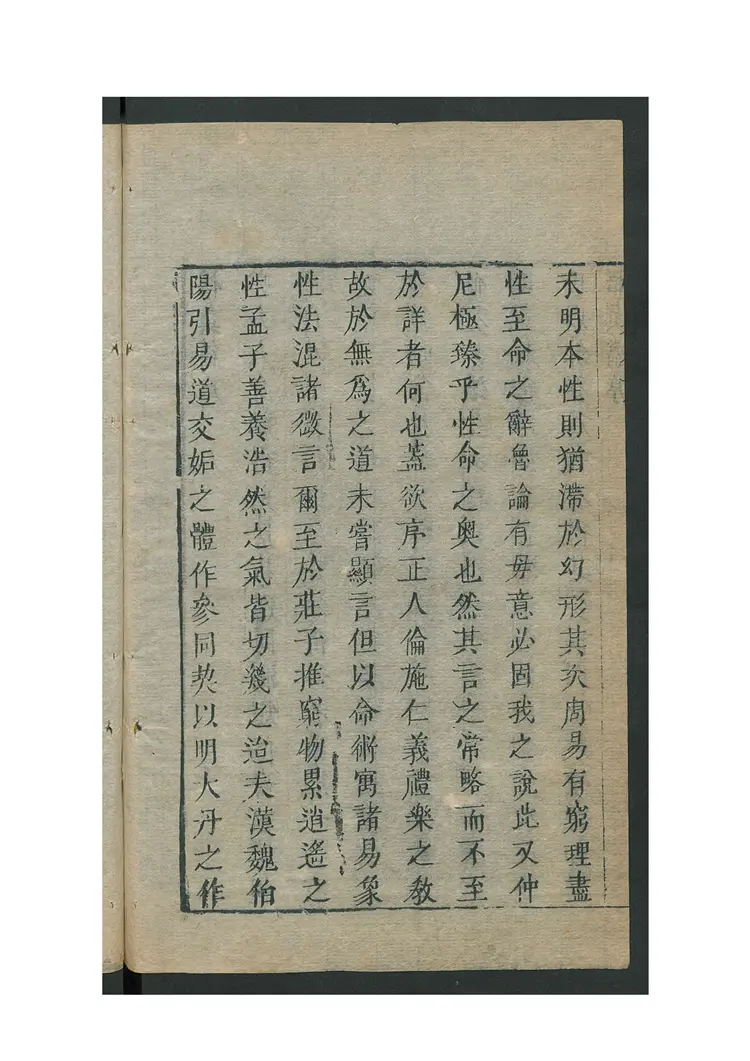 未明本性則猶滯於幻形其次周易有窮理盡
性至命之辭魯論有毋意必固我之說此又仲
尼極臻乎性命之奧也然其言之常略而不至
於詳者何也蓋欲序正人倫施仁義禮樂之教
故於無爲之道未嘗顯言但以命術寓諸易象
性法混諸微言爾至於莊子推窮物累逍遙之
性孟子善養浩然之氣皆切幾之迨夫漢魏伯
陽引易道交姤之體作參同契以明大丹之作